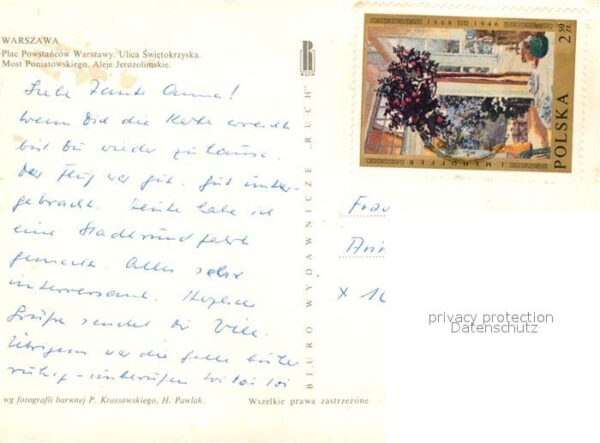 WARSZAWA
Plac Powstańców Warszawy. Ulica Świętokrzyska.
Most Poniatowskiego. Aleje Jerozolimskie.
Liebe Tante Anna!
Wenn Dich die Karte erreicht
bist Du wieder zu Hause.
Der Flug war gut. Gut unter-
gebracht. Heute habe ich
eine Stadtrundfahrt
gemacht. Alles sehr
interessant. Herzliche
Grüße sendet Dir
Übrigens war die Galle bisher
ruhig - unberufen toi toi toi
wg fotografii barwnej P. Krassowskiego, H. Pawlak.
Wszelkie prawa zastrzeżone
BIURO WYDAWNICZE „RUCH"
R
RUCH
1569 1946
2,50 ZŁ
POLSKA
Frau
x 10
privacy protection
Datenschutz